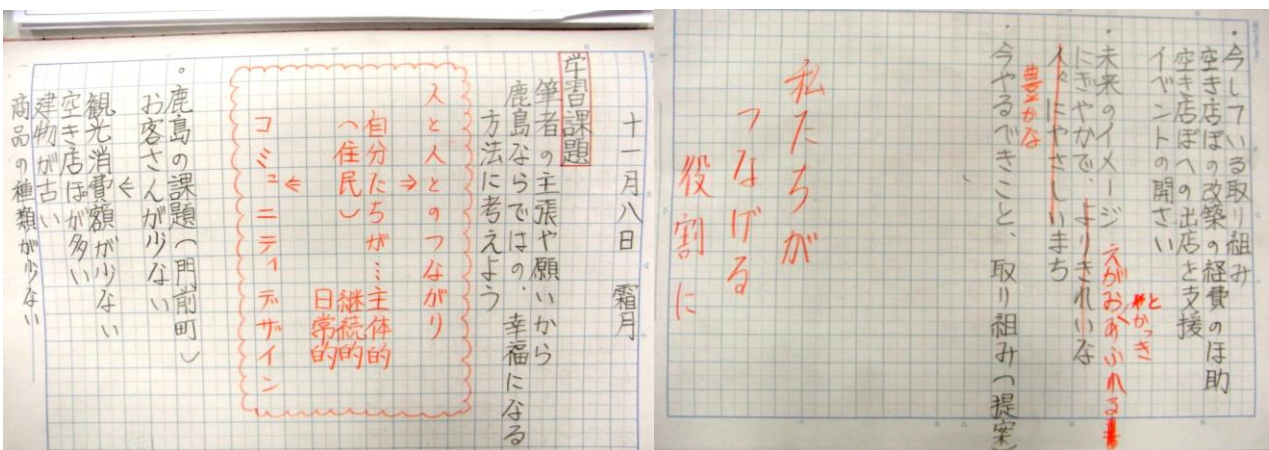 十一月八日 霜月
学習課題
筆者の主張や願いから
鹿島ならではの、幸福になる
方法に考えよう
人と人とのつながり
自分たちが…主体的
(住民)
継続的
日常的
コミュニティデザイン
。鹿島の課題(門前町)
お客さんが少ない
観光消費額が少ない
空き店ぽが多い
建物が古い
商品の種類が少ない
・今している取り組み
空き店ぽの改築の経費のほ助
空き店ぽへの出店を支援
イベントの開さい
・未来のイメージ えがおあふれる
とかっき
にぎやかで、よりきれいな
人々にやさしいまち
豊かな
・今やるできこと、取り組み(提案)
私たちが
つなげる
役割に